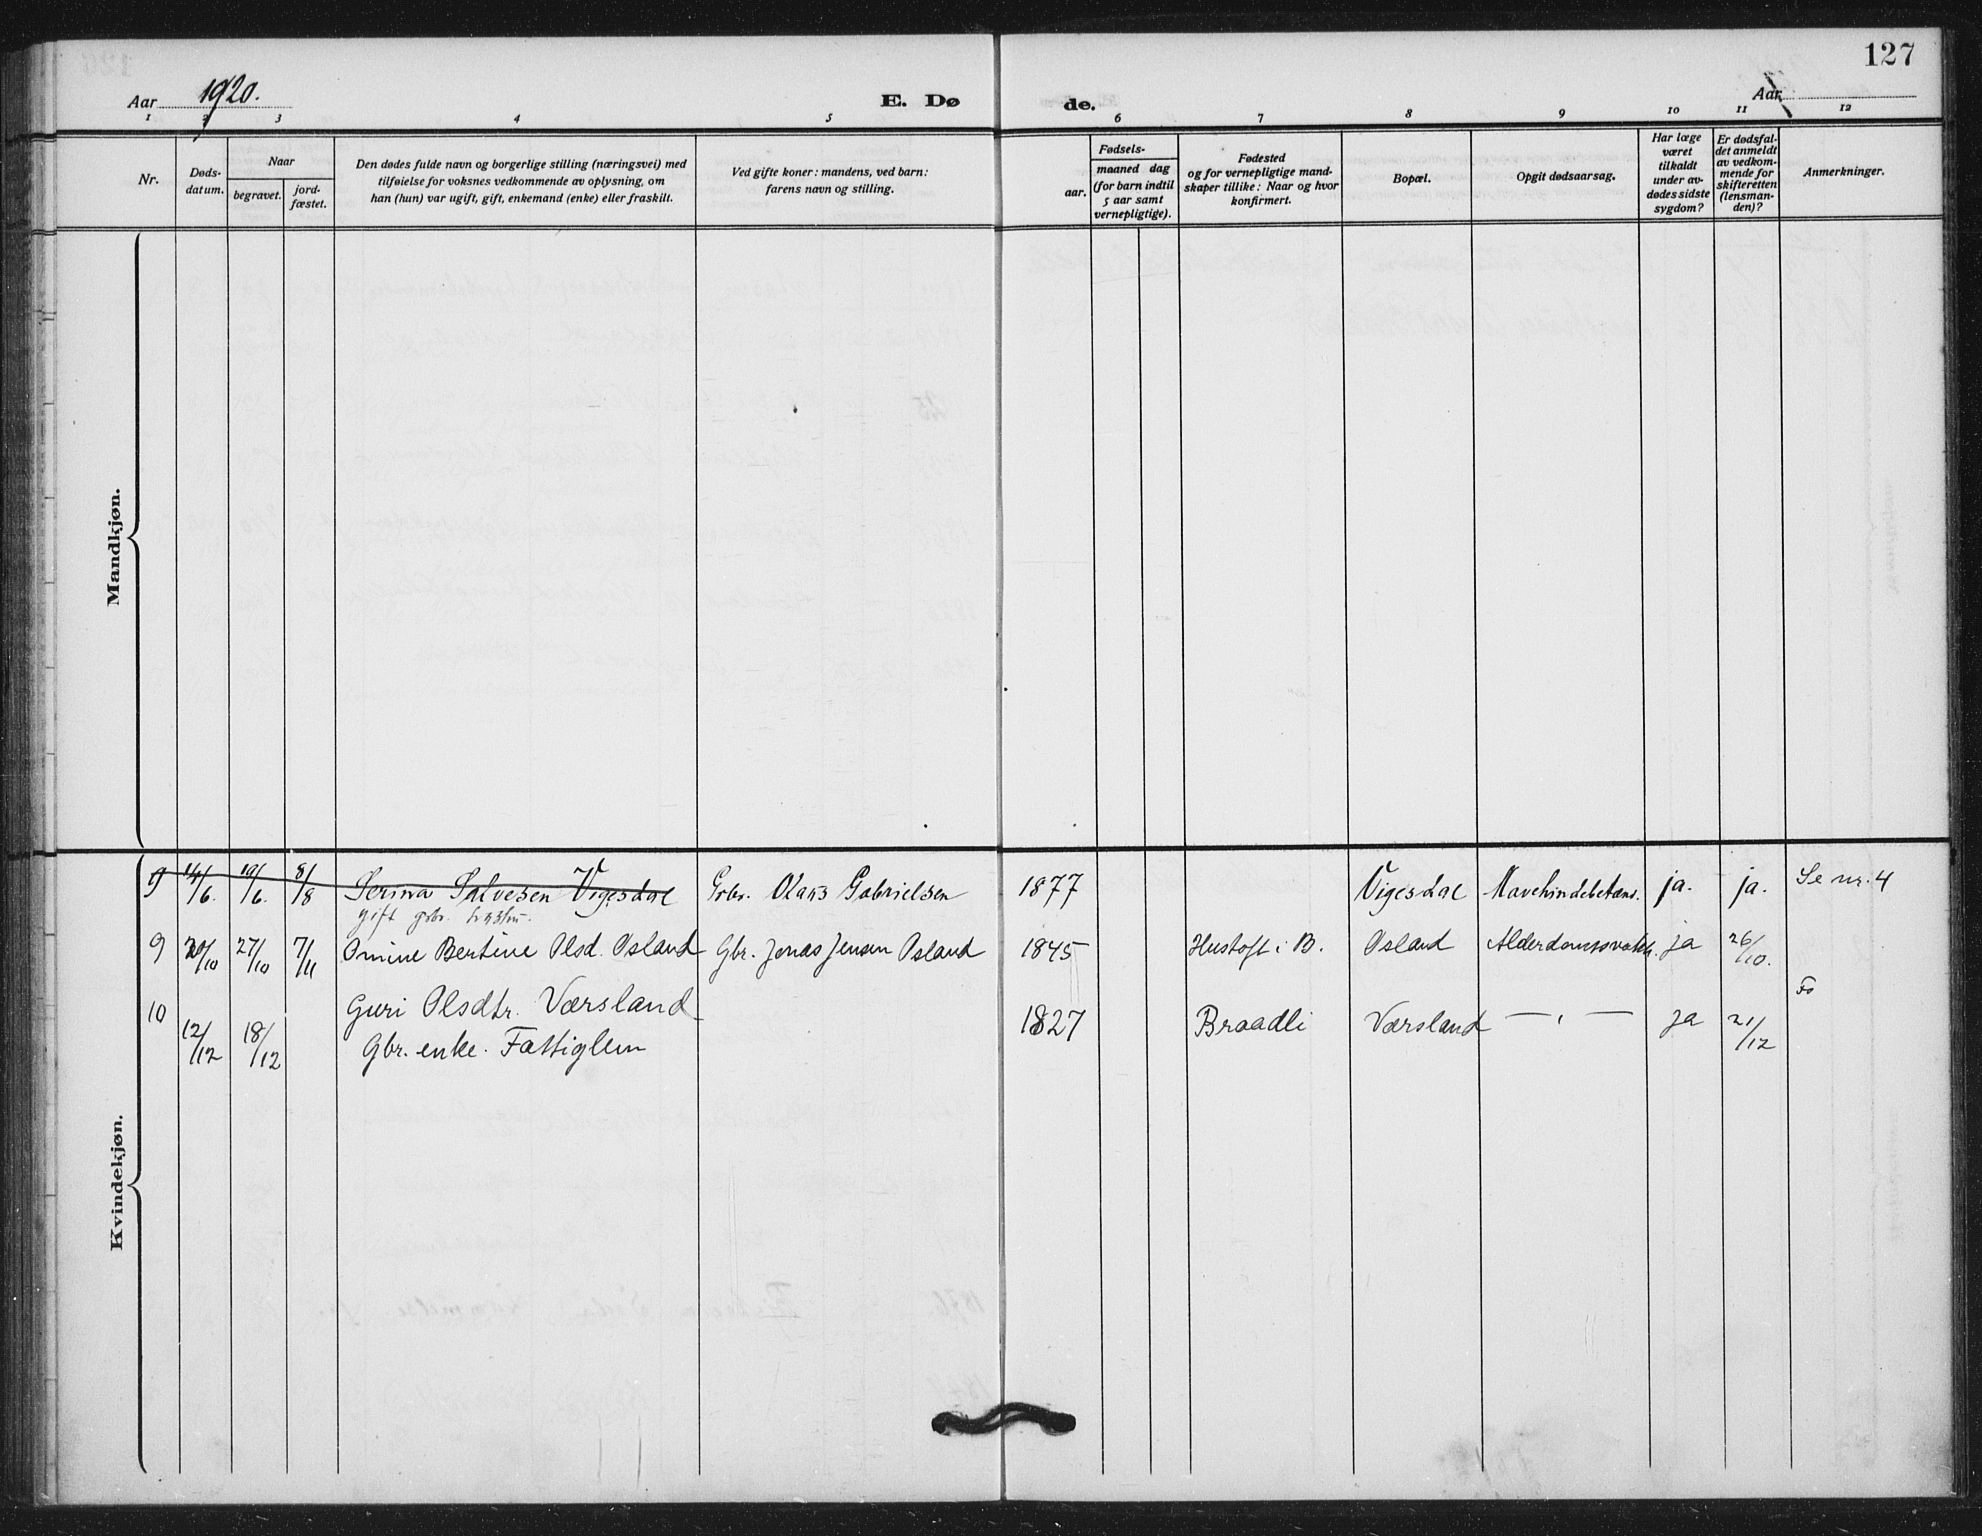 127
Aar 1920.
E. Dø
de.
Aar
1 2 3 4 5 6 7 8 9 10 11 12
Nr.
Døds-
datum.
Naar
begravet.
jord-
fæstet.
Den dødes fulde navn og borgerlige stilling (næringsvei) med
tilføielse for voksnes vedkommende av oplysning, om
han (hun) var ugift, gift, enkemand (enke) eller fraskilt.
Ved gifte koner: mandens, ved barn:
farens navn og stilling.
Fødsels-
aar.
maaned dag
(for barn indtil
5 aar samt
vernepligtige).
Fødested
og for vernepligtige mand-
skaper tillike: Naar og hvor
konfirmert.
Bopæl.
Opgit dødsaarsag.
Har læge
været
tilkaldt
under av-
dødes sidste
sygdom?
Er dødsfal-
det anmeldt
av vedkom-
mende for
skifteretten
(lensman-
den)?
Anmerkninger.
Mandkjøn.
Kvindekjøn.
9 14/6. 19/6. 8/8 Serina Salvesen Vigesdal Gbr. Olaus Gabrielsen 1877 Vigesdal Mavehindebetæns. ja. ja. Se nr. 4
gift gbr. hustru.
9 20/10 27/10 7/11 Omine Bertine Olsd. Osland Gbr. Jonas Jensen Osland 1845 Hustoft i B. Osland Alderdomssvakh. ja 26/10.
10 12/12 18/12 Guri Olsdtr. Værsland 1827 Braadli Værsland — " — ja 21/12
Gbr. enke. Fattiglem